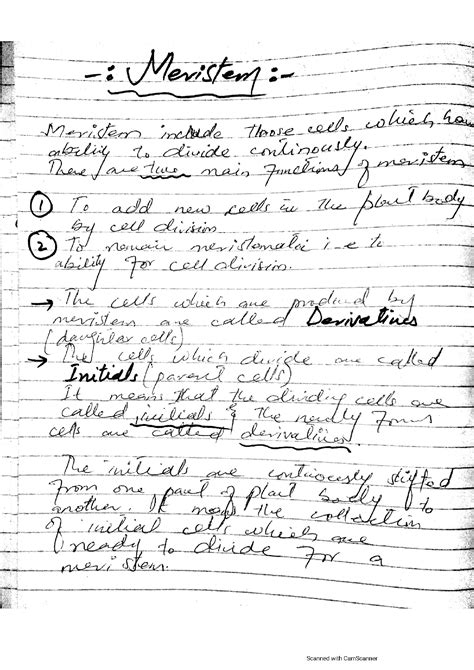 -: Meristem :-
Meristem include those cells which have
ability to divide continously.
There are two main functions of meristem
① To add new cells in the plant body
by cell division.
② To remain meristematic i-e to
ability for cell division.
→ The cells which are produced by
meristem are called Derivatives
(daugular cells)
→ The cells which divide are called
Initials (parent cells)
It means that the dividing cells are
called initials & the newly form
cells are called derivatives
The initials are continously shifted
from one part of plant body to
another. It means the collection
of initial cells which are
ready to divide for a
meristem.
Scanned with CamScanner